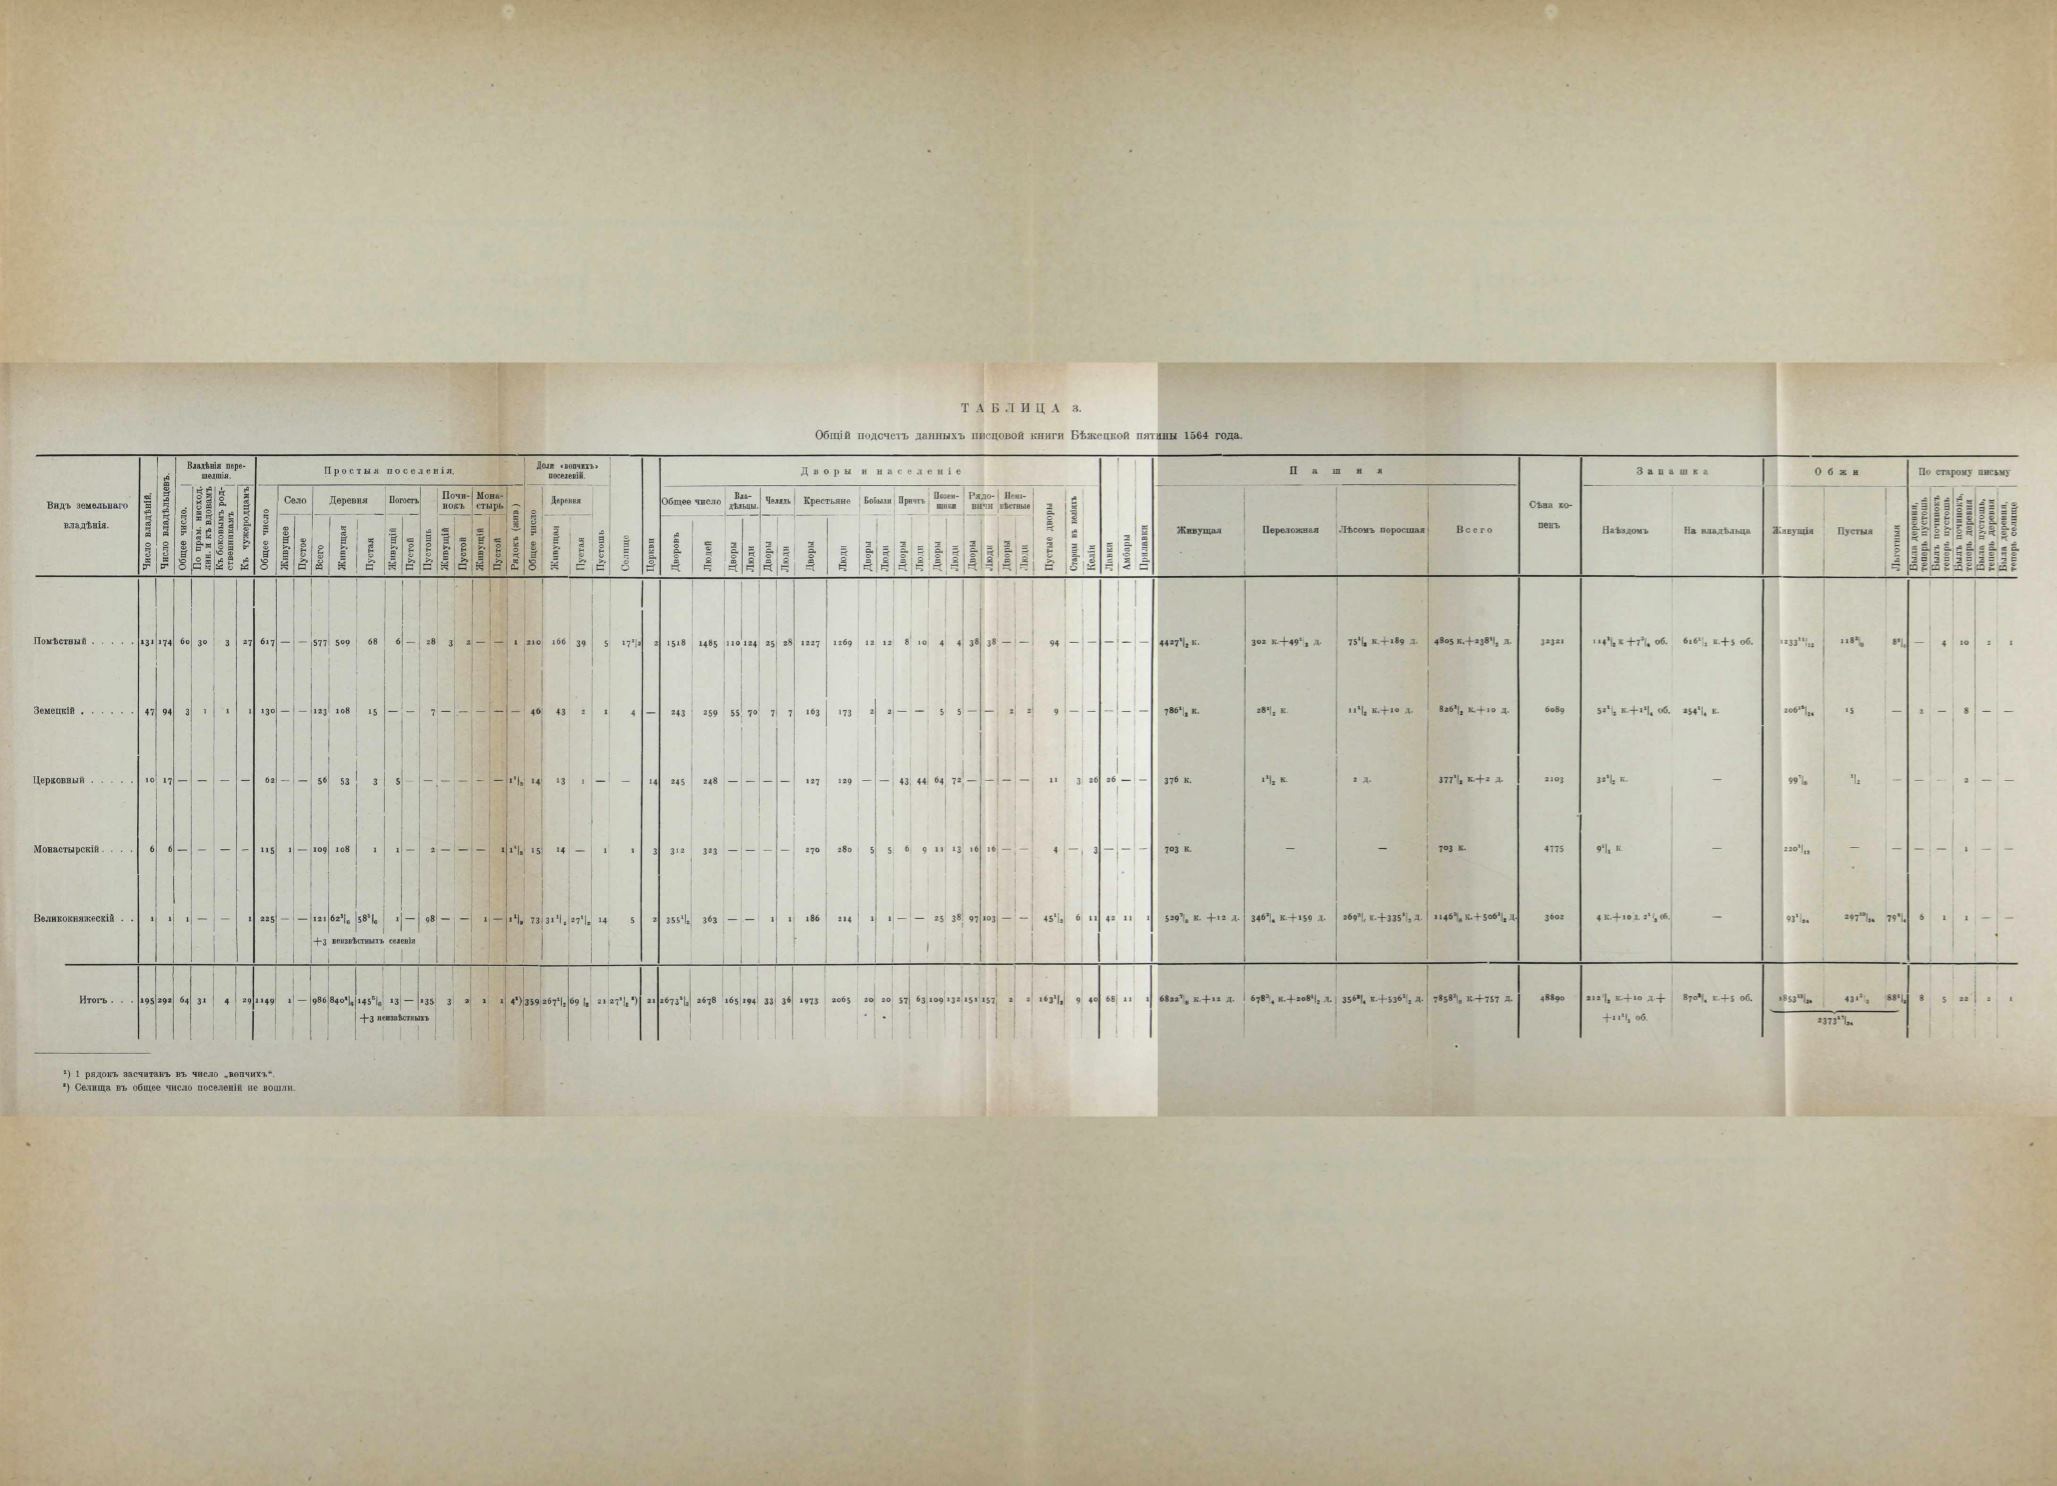 ТАБЛИЦА 3.
Общій подсчетъ данныхъ писцовой книги Бѣжецкой пятины 1564 года.
Видъ земельнаго владѣнія.
Число владѣній.
Число владѣльцевъ.
Владѣнія перешедшія.
Общее число.
По прям. нисход. лин. и къ вдовамъ
Къ боковымъ родственникамъ
Къ чужеродцамъ
Простыя поселенія.
Общее число
Село
Живущее
Пустое
Деревня
Всего
Живущая
Пустая
Погостъ
Живущій
Пустой
Пустошь
Починокъ
Живущій
Пустой
Монастырь
Живущій
Пустой
Рядокъ (жив.)
Доли «вопчихъ» поселеній.
Общее число
Деревня
Живущая
Пустая
Пустошь
Селище
Церкви
Дворы и населеніе
Общее число
Дворовъ
Людей
Владѣльцы.
Дворы
Люди
Челядь
Дворы
Люди
Крестьяне
Дворы
Люди
Бобыли
Дворы
Люди
Причтъ
Дворы
Люди
Позенщики
Дворы
Люди
Рядовичи
Дворы
Люди
Неизвѣстные
Дворы
Люди
Пустые дворы
Старцы въ келіяхъ
Келіи
Лавки
Амбары
Прилавки
Пашня
Живущая
Переложная
Лѣсомъ поросшая
Всего
Сѣна копенъ
Запашка
Наѣздомъ
На владѣльца
Обжи
Живущія
Пустыя
Льготныя
По старому письму
Была деревня, теперь пустошь
Былъ починокъ теперь пустошь
Былъ починокъ, теперь деревня
Была пустошь, теперь деревня
Была деревня, теперь селище
Помѣстный . . . . . 131 174 60 30 3 27 617 — — 577 509 68 6 — 28 3 2 — — 1 210 166 39 5 17¹|₂ 2 1518 1485 110 124 25 28 1227 1269 12 12 8 10 4 4 38 38 — — 94 — — — — — 4427¹|₂ к. 302 к.+49¹|₂ д. 75¹|₂ к.+189 д. 4805 к.+238¹|₂ д. 32321 616¹|₂ к.+5 об. — 4 10 2 1
Земецкій . . . . . . 47 94 3 1 1 1 130 — — 123 108 15 — — 7 — — — — — 46 43 2 1 4 — 243 259 55 70 7 7 163 173 2 2 — — 5 5 — — 2 2 9 — — — — — 786¹|₂ к. 28¹|₂ к. 11¹|₂ к.+10 д. 826¹|₂ к.+10 д. 6089 254¹|₄ к. 15 — 2 — 8 — —
Церковный . . . . . 10 17 — — — — 62 — — 56 53 3 5 — — — — — — 1¹|₂ 14 13 1 — — 14 245 248 — — — — 127 129 — — 43 44 64 72 — — — — 11 3 26 26 — — 376 к. 1¹|₂ к. 2 д. 377¹|₂ к.+2 д. 2103 32¹|₂ к. — ¹|₂ — — — 2 — —
Монастырскій . . . . 6 6 — — — — 115 1 — 109 108 1 1 — 2 — — — 1 1¹|₂ 15 14 — 1 1 3 312 323 — — — — 270 280 5 5 6 9 11 13 16 16 — — 4 — 3 — — — 703 к. — — 703 к. 4775 9¹|₂ к — 220¹|₁₂ — — — — 1 — —
Великокняжескій . . 1 1 1 — — 1 225 — — 121 1 — 98 — — 1 — 73 31¹|₂ 27¹|₂ 14 5 2 355¹|₂ 363 — — 1 1 186 214 1 1 — — 25 38 97 103 — — 45¹|₂ 6 11 42 11 1 3602 — 6 1 1 — —
+3 неизвѣстныхъ селенія
Итогъ . . . 195 292 64 31 4 29 1149 1 — 986 13 — 135 3 2 1 1 4¹) 359 267¹|₂ 69 21 27¹|₂ ²) 21 2673¹|₂ 2678 165 194 33 36 1973 2065 20 20 57 63 109 132 151 157 2 2 163¹|₂ 9 40 68 11 1 48890 8 5 22 2 1
+3 неизвѣстныхъ
¹) 1 рядокъ засчитанъ въ число „вопчихъ“.
²) Селища въ общее число поселеній не вошли.